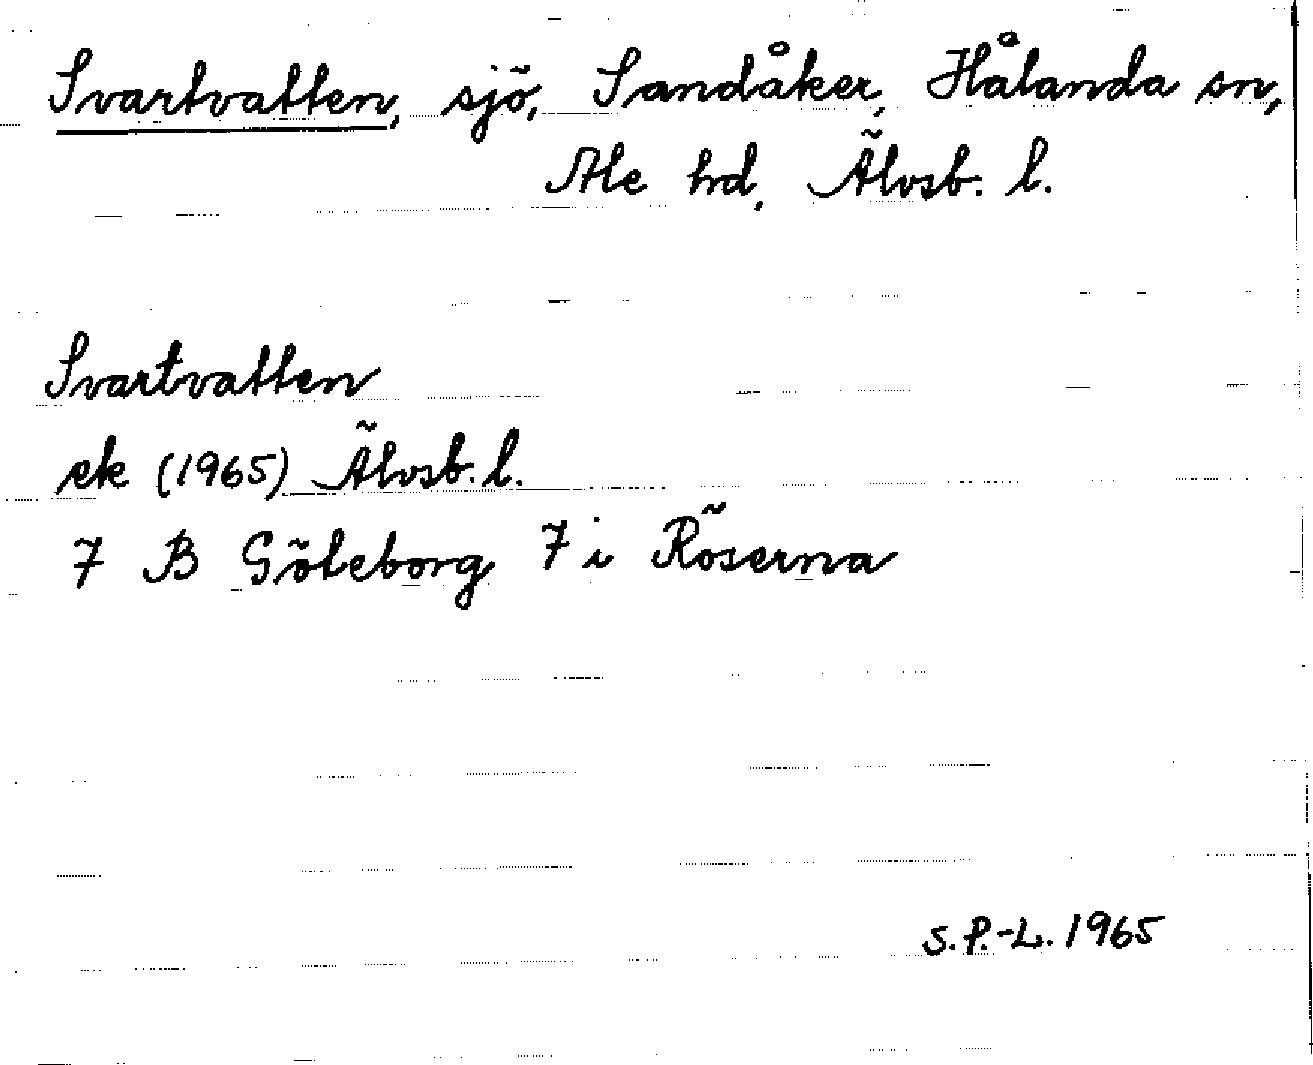 Svartvatten, sjö, Sandåker, Hålanda sn,
Ale hd, Älvsb. l.
Svartvatten
ek (1965) Älvsb. l.
7 B Göteborg 7 i Röserna
S.P.-L. 1965